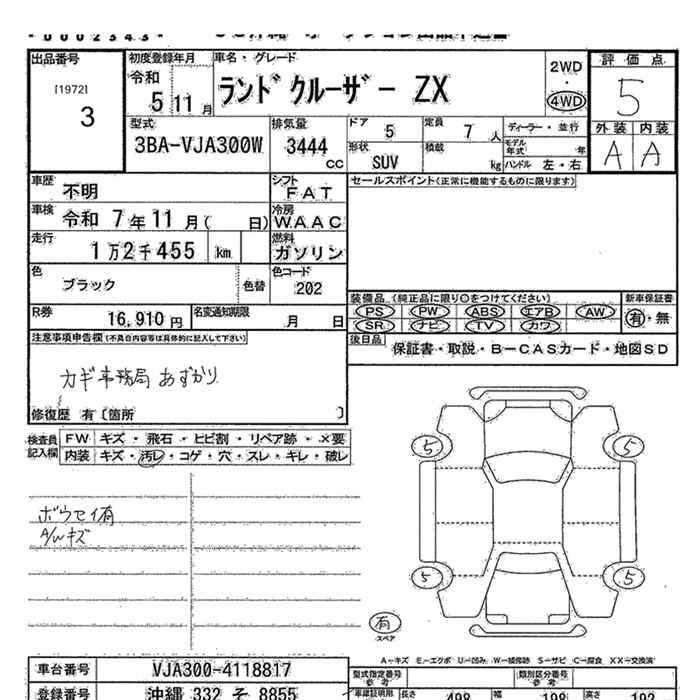 00002343
出品番号
[1972]
3
初度登録年月
令和
5 11 月
車名・グレード
ランドクルーザー ZX
2WD
・
4WD
評価点
5
外装 内装
A A
型式
3BA-VJA300W
排気量
3444
cc
ドア
5
定員
7 人
ディーラー・並行
形状
SUV
積載
kg
モデル年式 年
ハンドル 左・右
車歴
不明
シフト
FAT
セールスポイント(正常に機能するものに限ります)
車検
令和 7 年 11 月( 日)
冷房
WAAC
走行
1万2千455 km
燃料
ガソリン
色
ブラック
色替
色コード
202
装備品 (純正品に限り○をつけてください)
PS PW ABS エアB AW
SR ナビ TV カワ
新車保証書
有・無
R券
16,910 円
名変通知期限
月 日
後日品
保証書・取説・B-CASカード・地図SD
注意事項申告欄(不具合内容等は具体的に記入して下さい)
カギ事務局あずかり
修復歴 有〔箇所 〕
検査員
記入欄
FW キズ・飛石・ヒビ割・リペア跡・×要
内装 キズ・汚レ・コゲ・穴・スレ・キレ・破レ
ボウセイ有
A/Wキズ
5
5
5
5
有
スペア
A…キズ E…エクボ U…凹み W…補修跡 S…サビ C…腐食 XX…交換済
車台番号
VJA300-4118817
登録番号
沖縄 332 そ 8855
型式指定番号
参考
類別区分番号
参考
長さ
498
幅
198
高さ
192